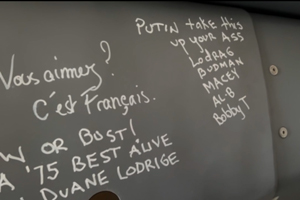 Vous aimez?
C'est Français.
W OR BUST!
A '75 BEST ALIVE
DUANE LODRIGE
PUTIN take this
up your ASS
LODRAG
BUDMAN
MACEY
AL-B
Bobby T